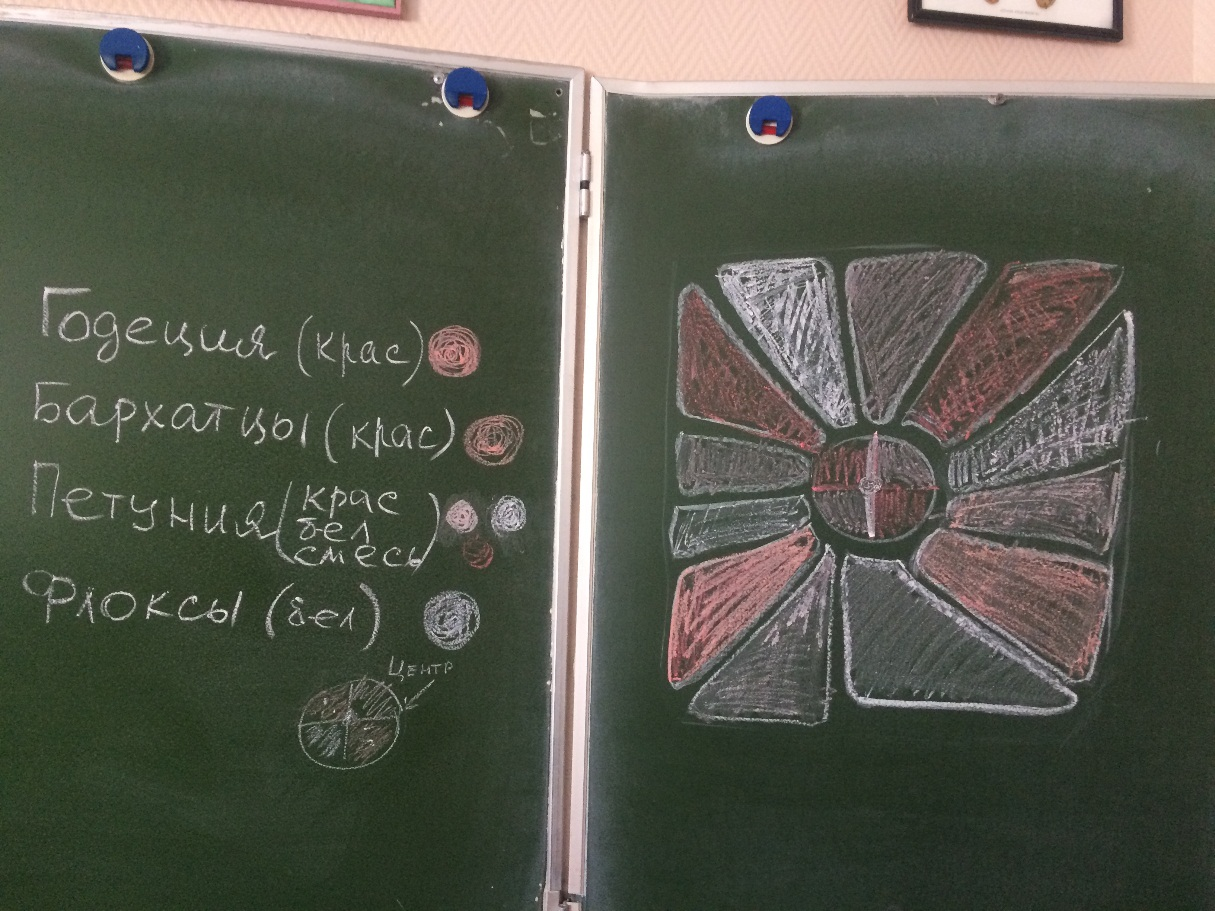 Годеция (крас)
Бархатцы (крас)
Петуния (крас
бел
смесь)
Флоксы (бел)
Центр